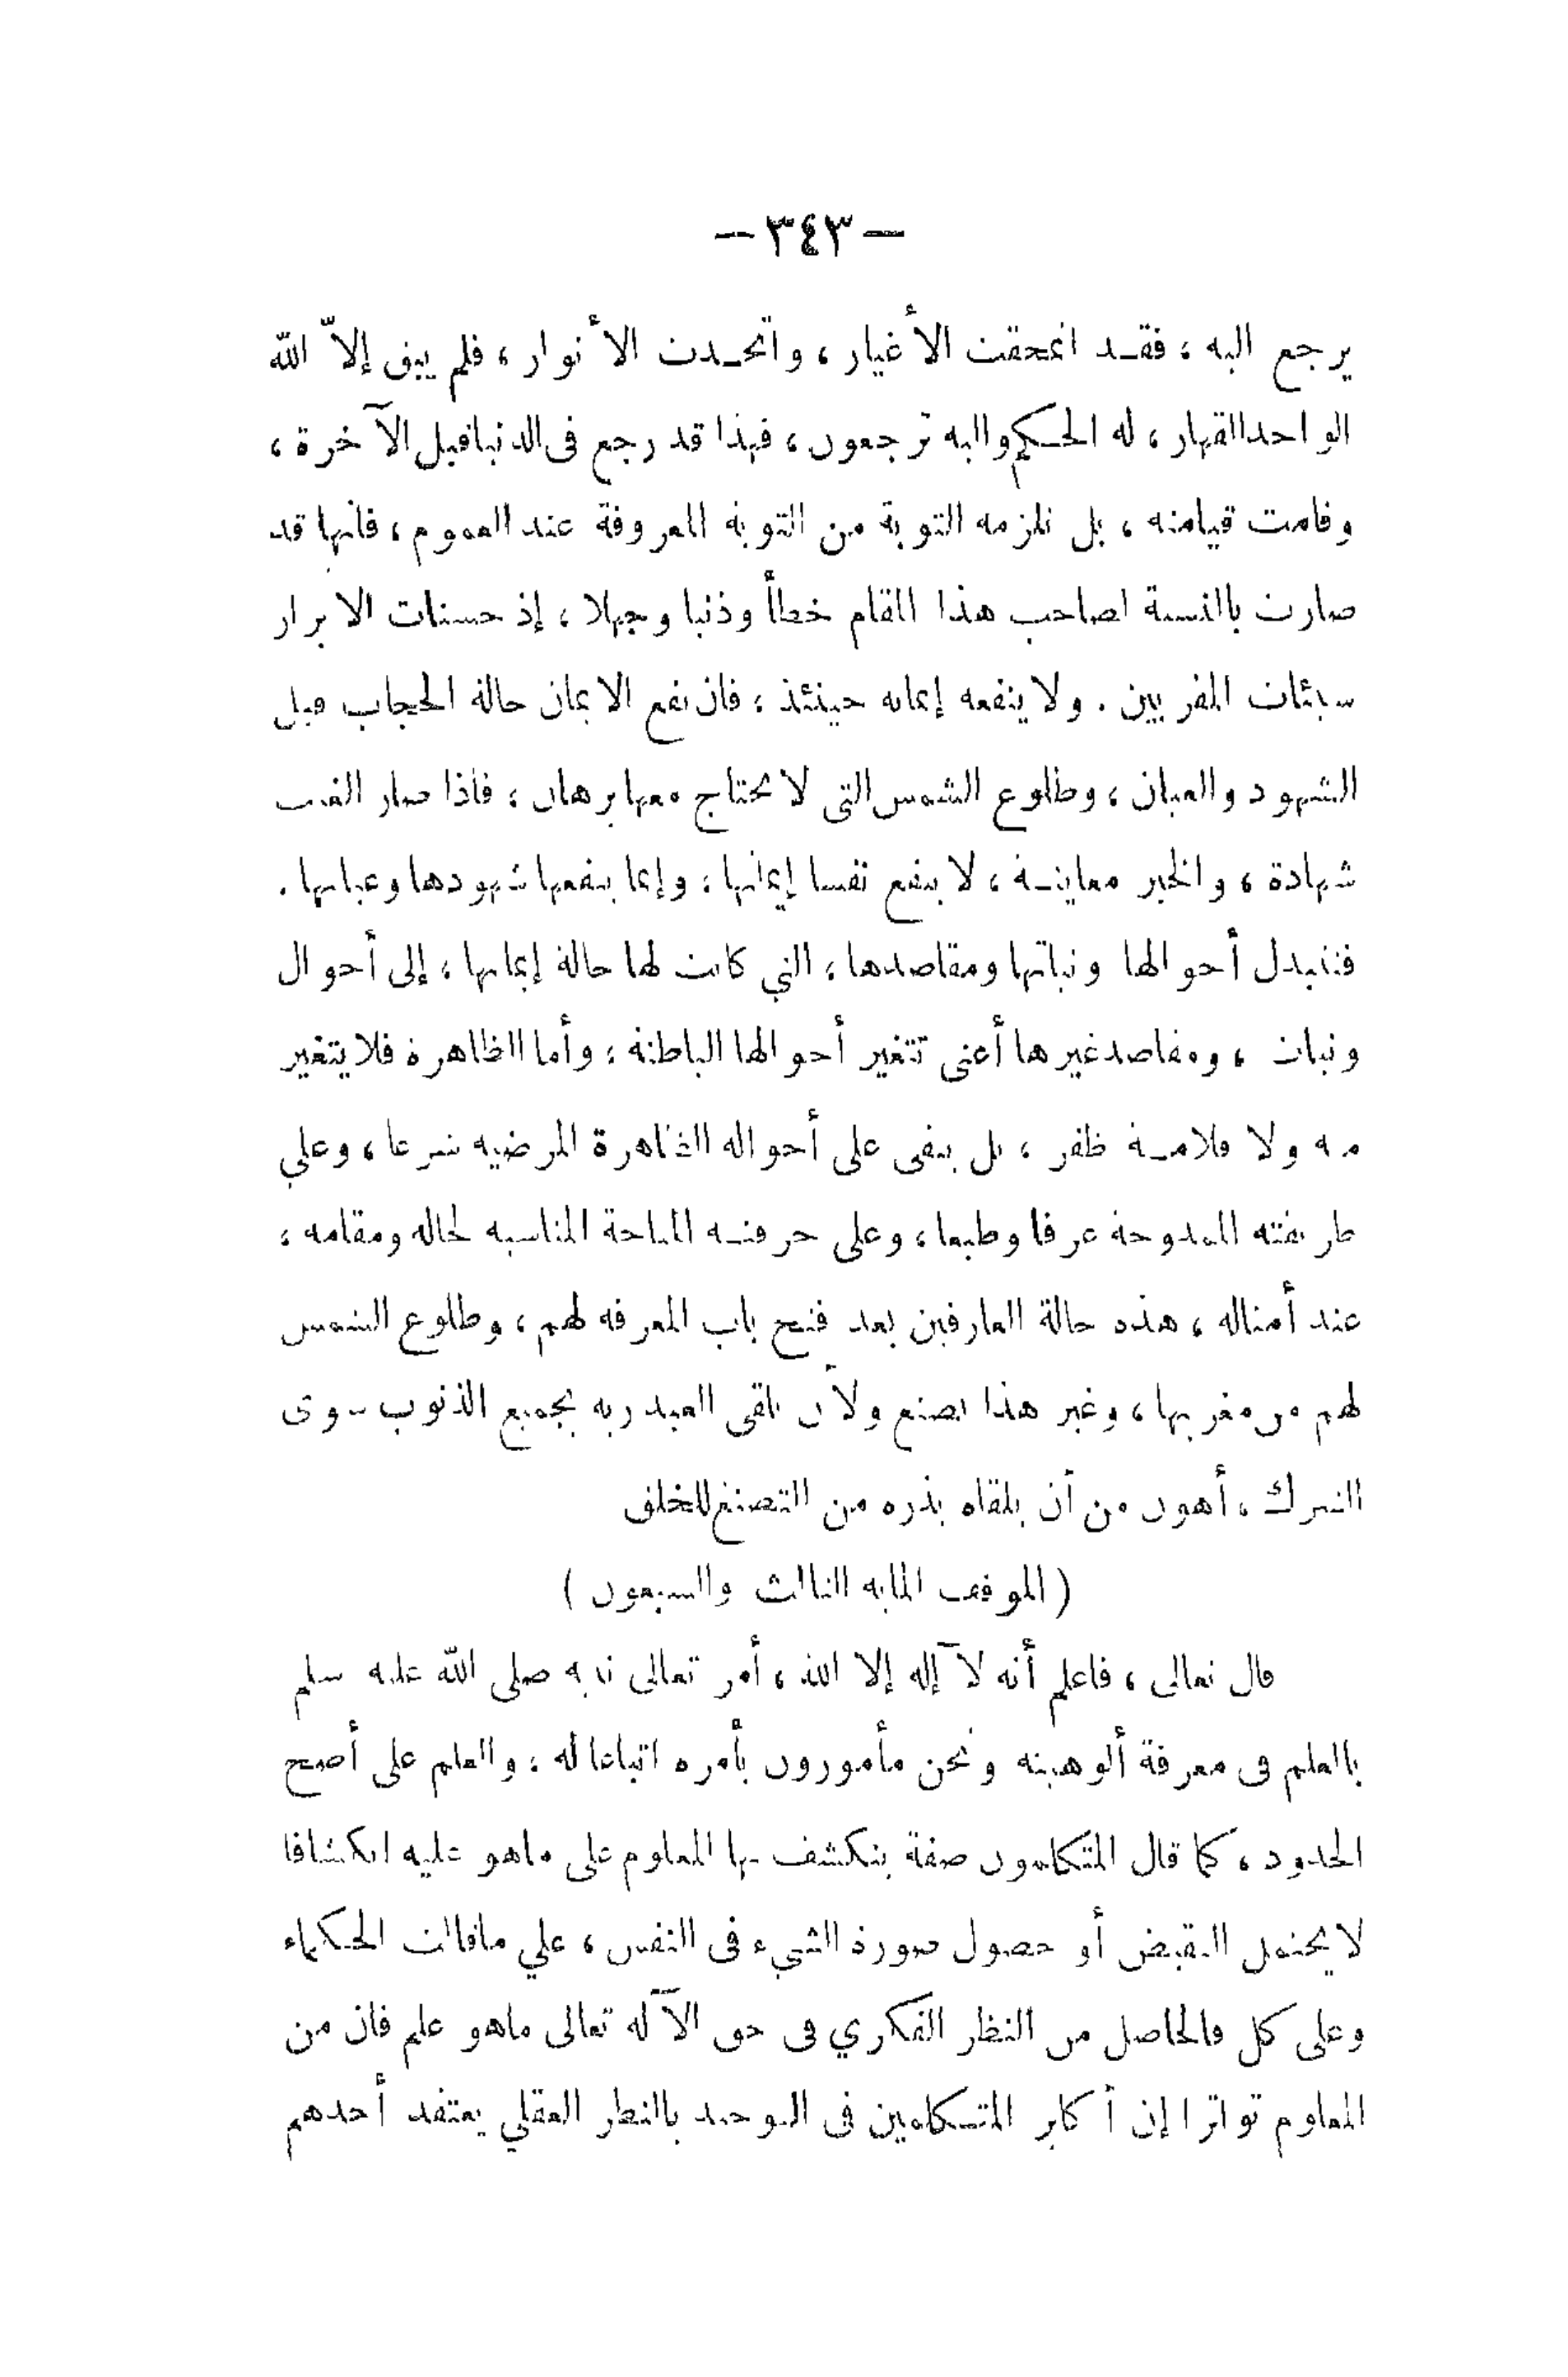 — ٣٤٣ —
يرجع اليه، فقد انمحقت الأغيار، واتحدت الأنوار، فلم يبق إلاّ اللّه
الواحد القهار، له الحكم واليه ترجعون، فهذا قد رجع فى الدنيا قبل الآخرة،
وقامت قيامته، بل تلزمه التوبة من التوبة المعروفة عند العموم، فانها قد
صارت بالنسبة لصاحب هذا المقام خطأ وذنبا وجهلا، إذ حسنات الابرار
سيئات المقربين. ولا ينفعه إيمانه حينئذ، فان نفع الايمان حالة الحجاب قبل
الشهود والعيان، وطلوع الشمس التى لا يحتاج معها برهان، فاذا صار الغيب
شهادة، والخبر معاينة، لا ينفع نفسا إيمانها، وإنما ينفعها شهودها وعيانها.
فتتبدل أحوالها ونياتها ومقاصدها، التي كانت لها حالة إيمانها، إلى أحوال
ونيات، ومقاصد غيرها أعنى تتغير أحوالها الباطنة، وأما الظاهرة فلا يتغير
منه ولا قلامة ظفر، بل يبقى على أحواله الظاهرة المرضيه شرعا، وعلي
طريقته الممدوحة عرفا وطبعا، وعلى حرفته المباحة المناسبه لحاله ومقامه،
عند أمثاله، هذه حالة العارفين بعد فتح باب المعرفه لهم، وطلوع الشمس
لهم من مغربها، وغير هذا تصنع ولأن يلقى العبد ربه بجميع الذنوب سوى
الشرك، أهون من أن يلقاه بذره من التصنع للخلق
(الموقف المايه الثالث والسبعون)
قال تعالى، فاعلم أنه لآ إله إلا الله، أمر تعالى نبيه صلى اللّه عليه سلم
بالعلم فى معرفة ألوهيته ونحن مأمورون بأمره اتباعا له، والعلم على أصح
الحدود، كما قال المتكلمون صفة ينكشف بها المعلوم على ماهو عليه انكشافا
لا يحتمل النقيض أو حصول صورة الشيء فى النفس، علي ماقالت الحكماء
وعلى كل فالحاصل من النظر الفكري فى حق الآله تعالى ماهو علم فان من
المعلوم تواترا إن أكابر المتكلمين فى التوحيد بالنظر العقلي يعتقد أحدهم